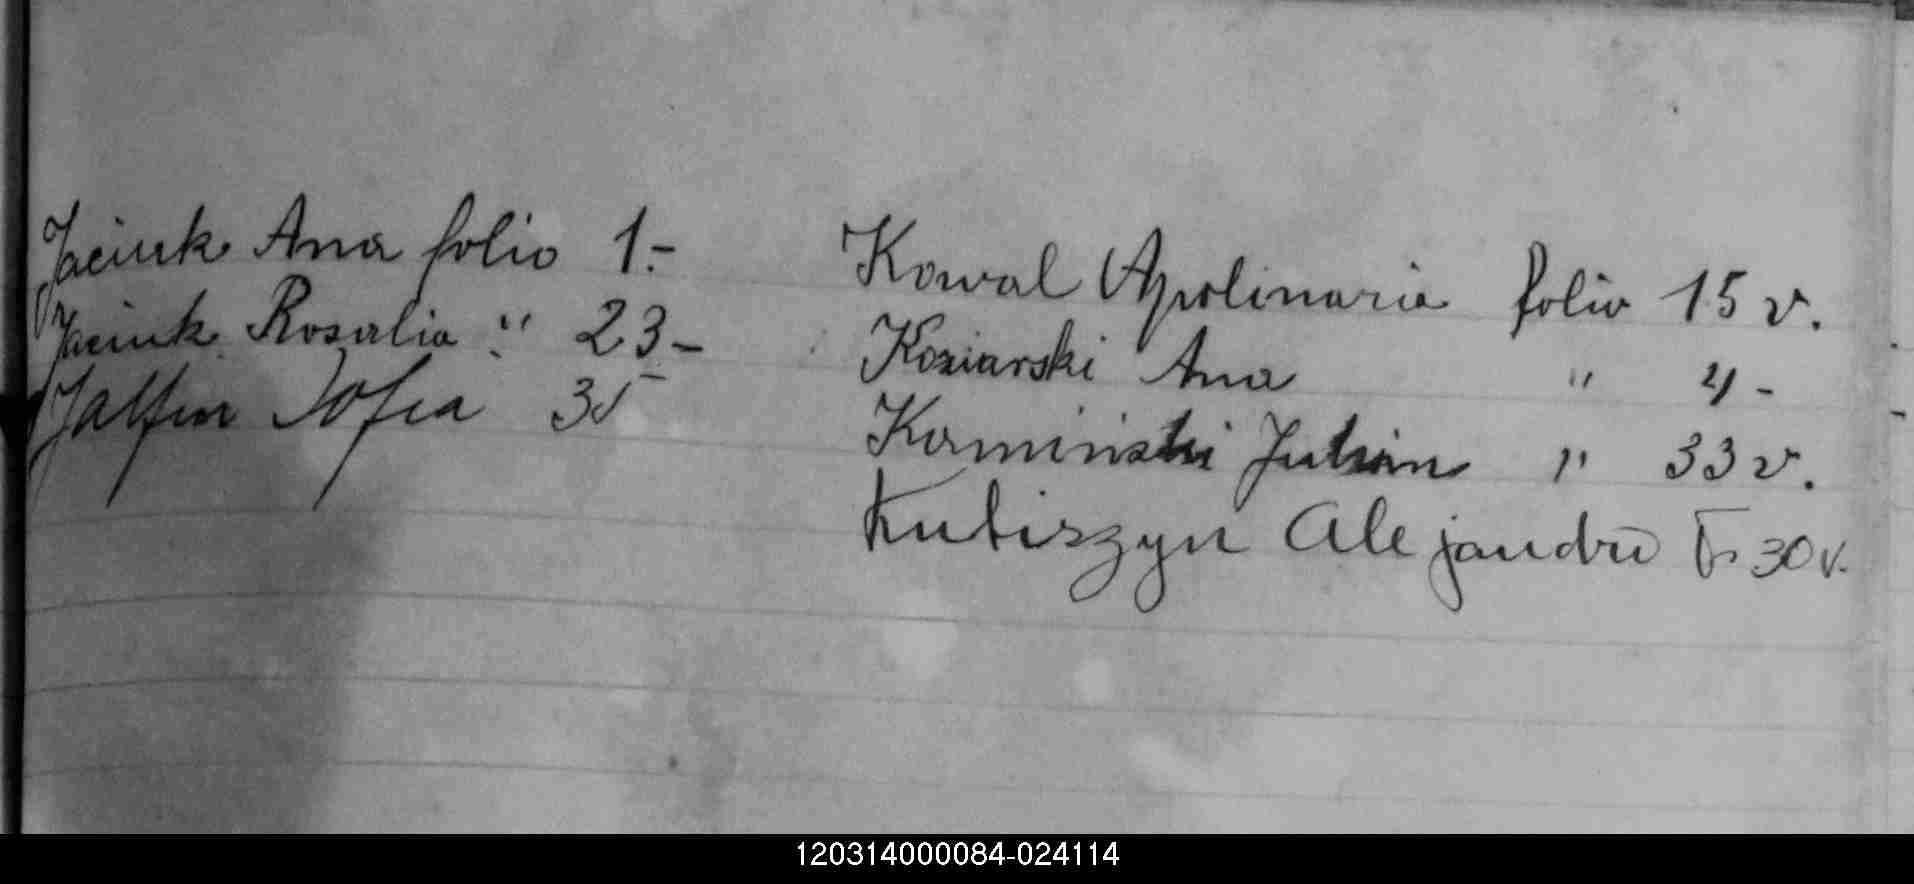 Jaciuk Ana folio 1.-
Jaciuk Rosalia " 23-
Sofia 35
Kowal Apolinaria folio 15 v.
Koziarski Ana " 4-
Kaminski Julian " 33 v.
Kubiszyn Alejandro F. 30 v.
120314000084-024114